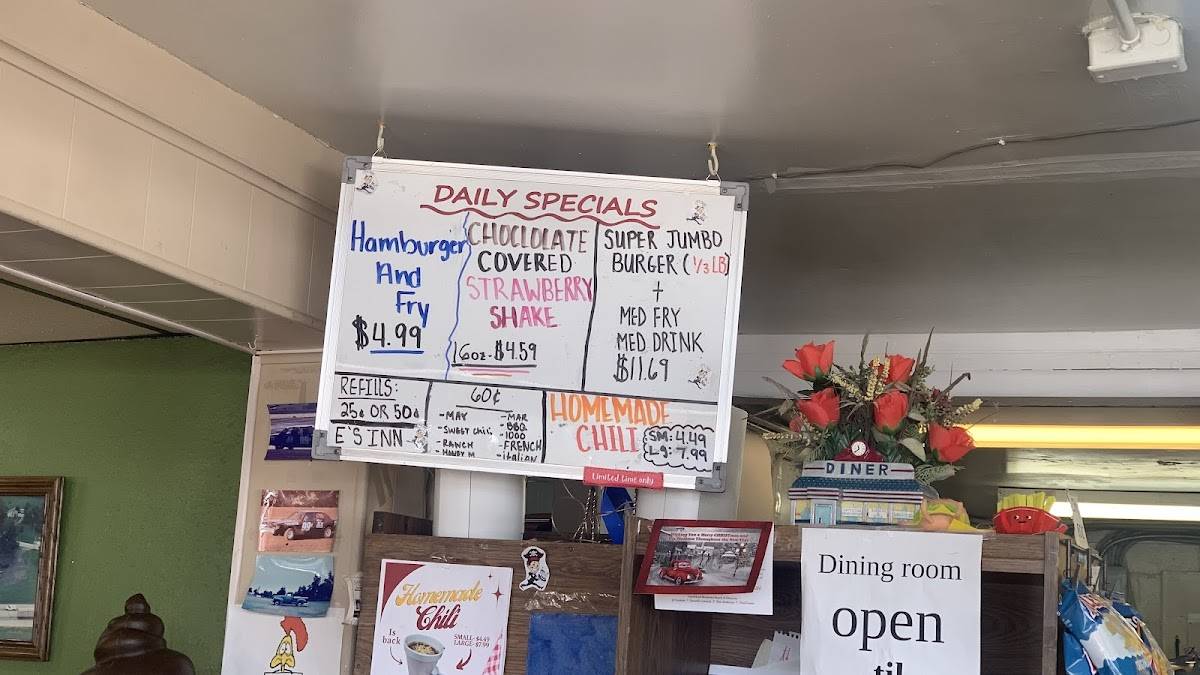 DAILY SPECIALS
Hamburger
And
Fry
$4.99
CHOCLOLATE
COVERED
STRAWBERRY
SHAKE
16oz - $4.59
SUPER JUMBO
BURGER (1/3 LB)
+
MED FRY
MED DRINK
$11.69
REFILLS:
25¢ OR 50¢
E'S INN
60¢
- MAY
- SWEET Chili
- RANCH
- HONEY M
- MAR
- BBQ
- 1000
- FRENCH
- italian
HOMEMADE
CHILI
SM: 4.49
Lg: 7.99
Limited time only
DINER
Homemade
Chili
Is
back
SMALL- $4.49
LARGE- $7.99
Dining room
open
til